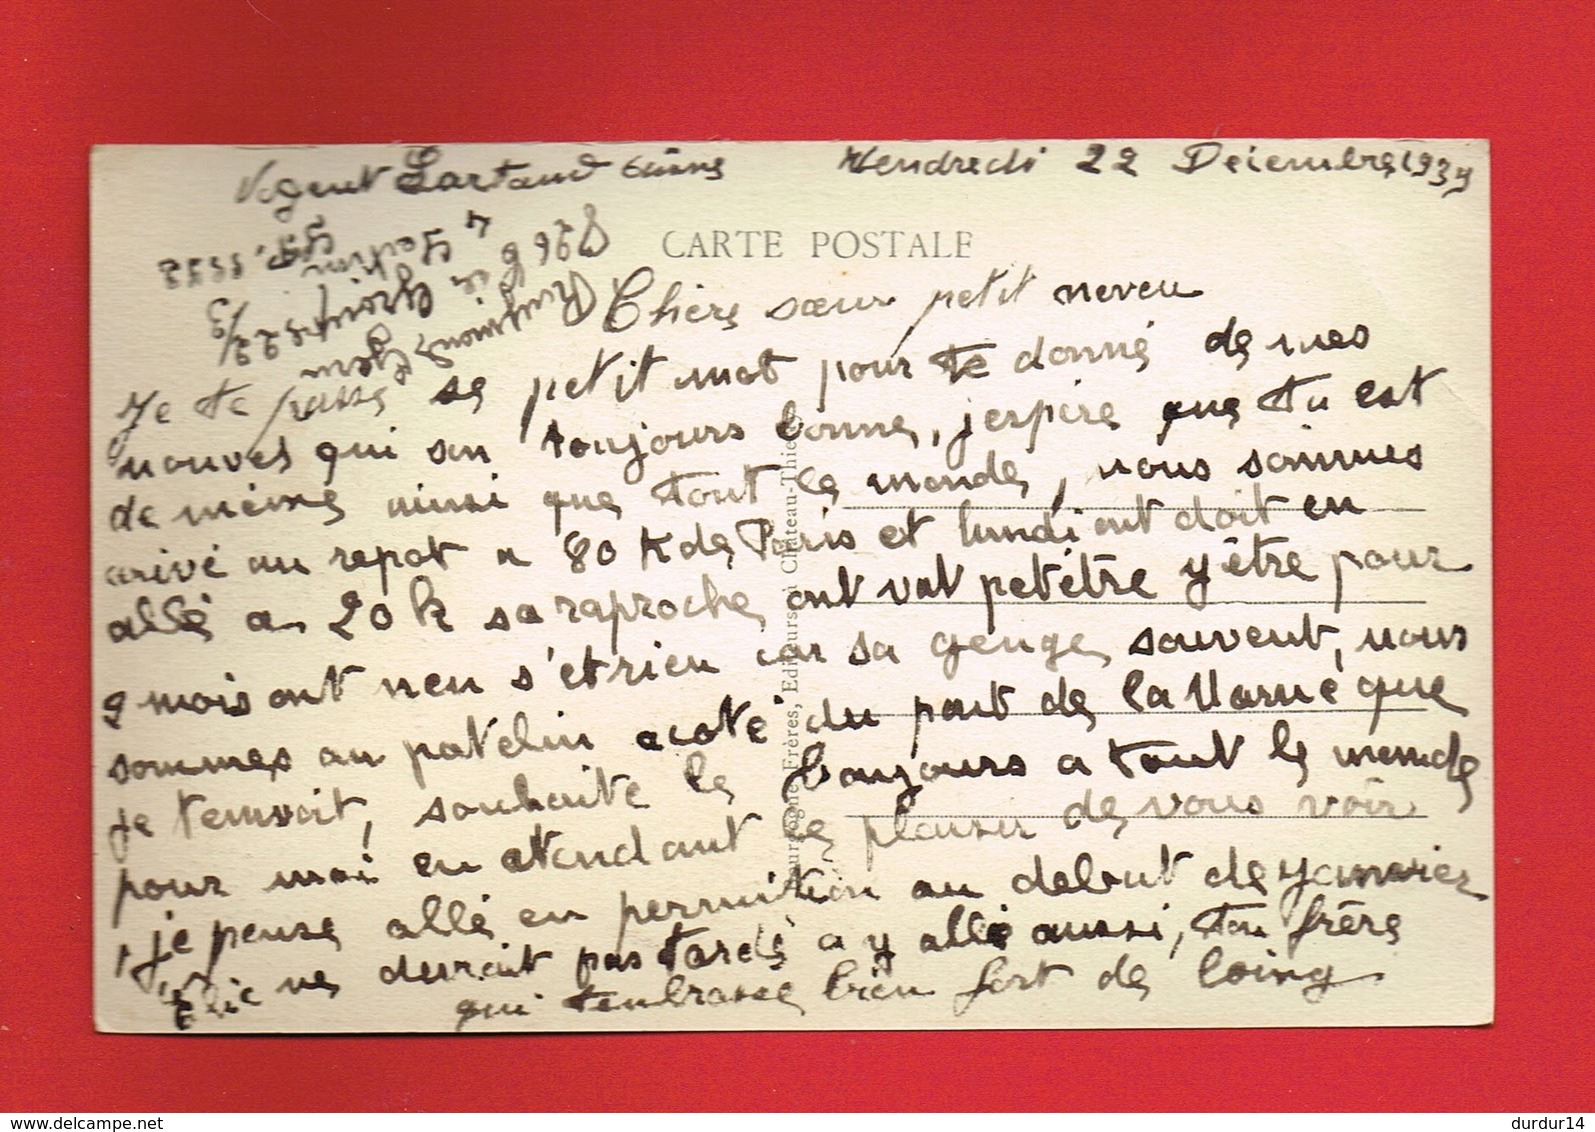 Nogent Lartaud Aisne Vendredi 22 Decembre 1939
CARTE POSTALE
Chère sœur petit neveu
Je te passe se petit mot pour te donné de mes
nouvel qui son toujours bonne, j'espère que tu est
de même ainsi que tout le monde, nous sommes
arivé au repot a 80 K de Paris et lundi ont doit en
allé a 20 k sa raproche, ont vat petêtre y être pour
2 mois ont nen s'et rien car sa change souvent, nous
sommes au patelin acoté du pont de la Marne que
je t'envoit, souhaite le bonjours a tout le monde
pour moi en atendant le plaisir de vous voir
je pense allé en permition au debut de Janvier
Elie ne devrait pas tardé a y allé aussi, ton frère
qui t'enbrasse bien fort de loing
Bourgogne Frères, Editeurs à Château-Thierry
Raymond
226
4
22/3
S.P. 3552
durdur14